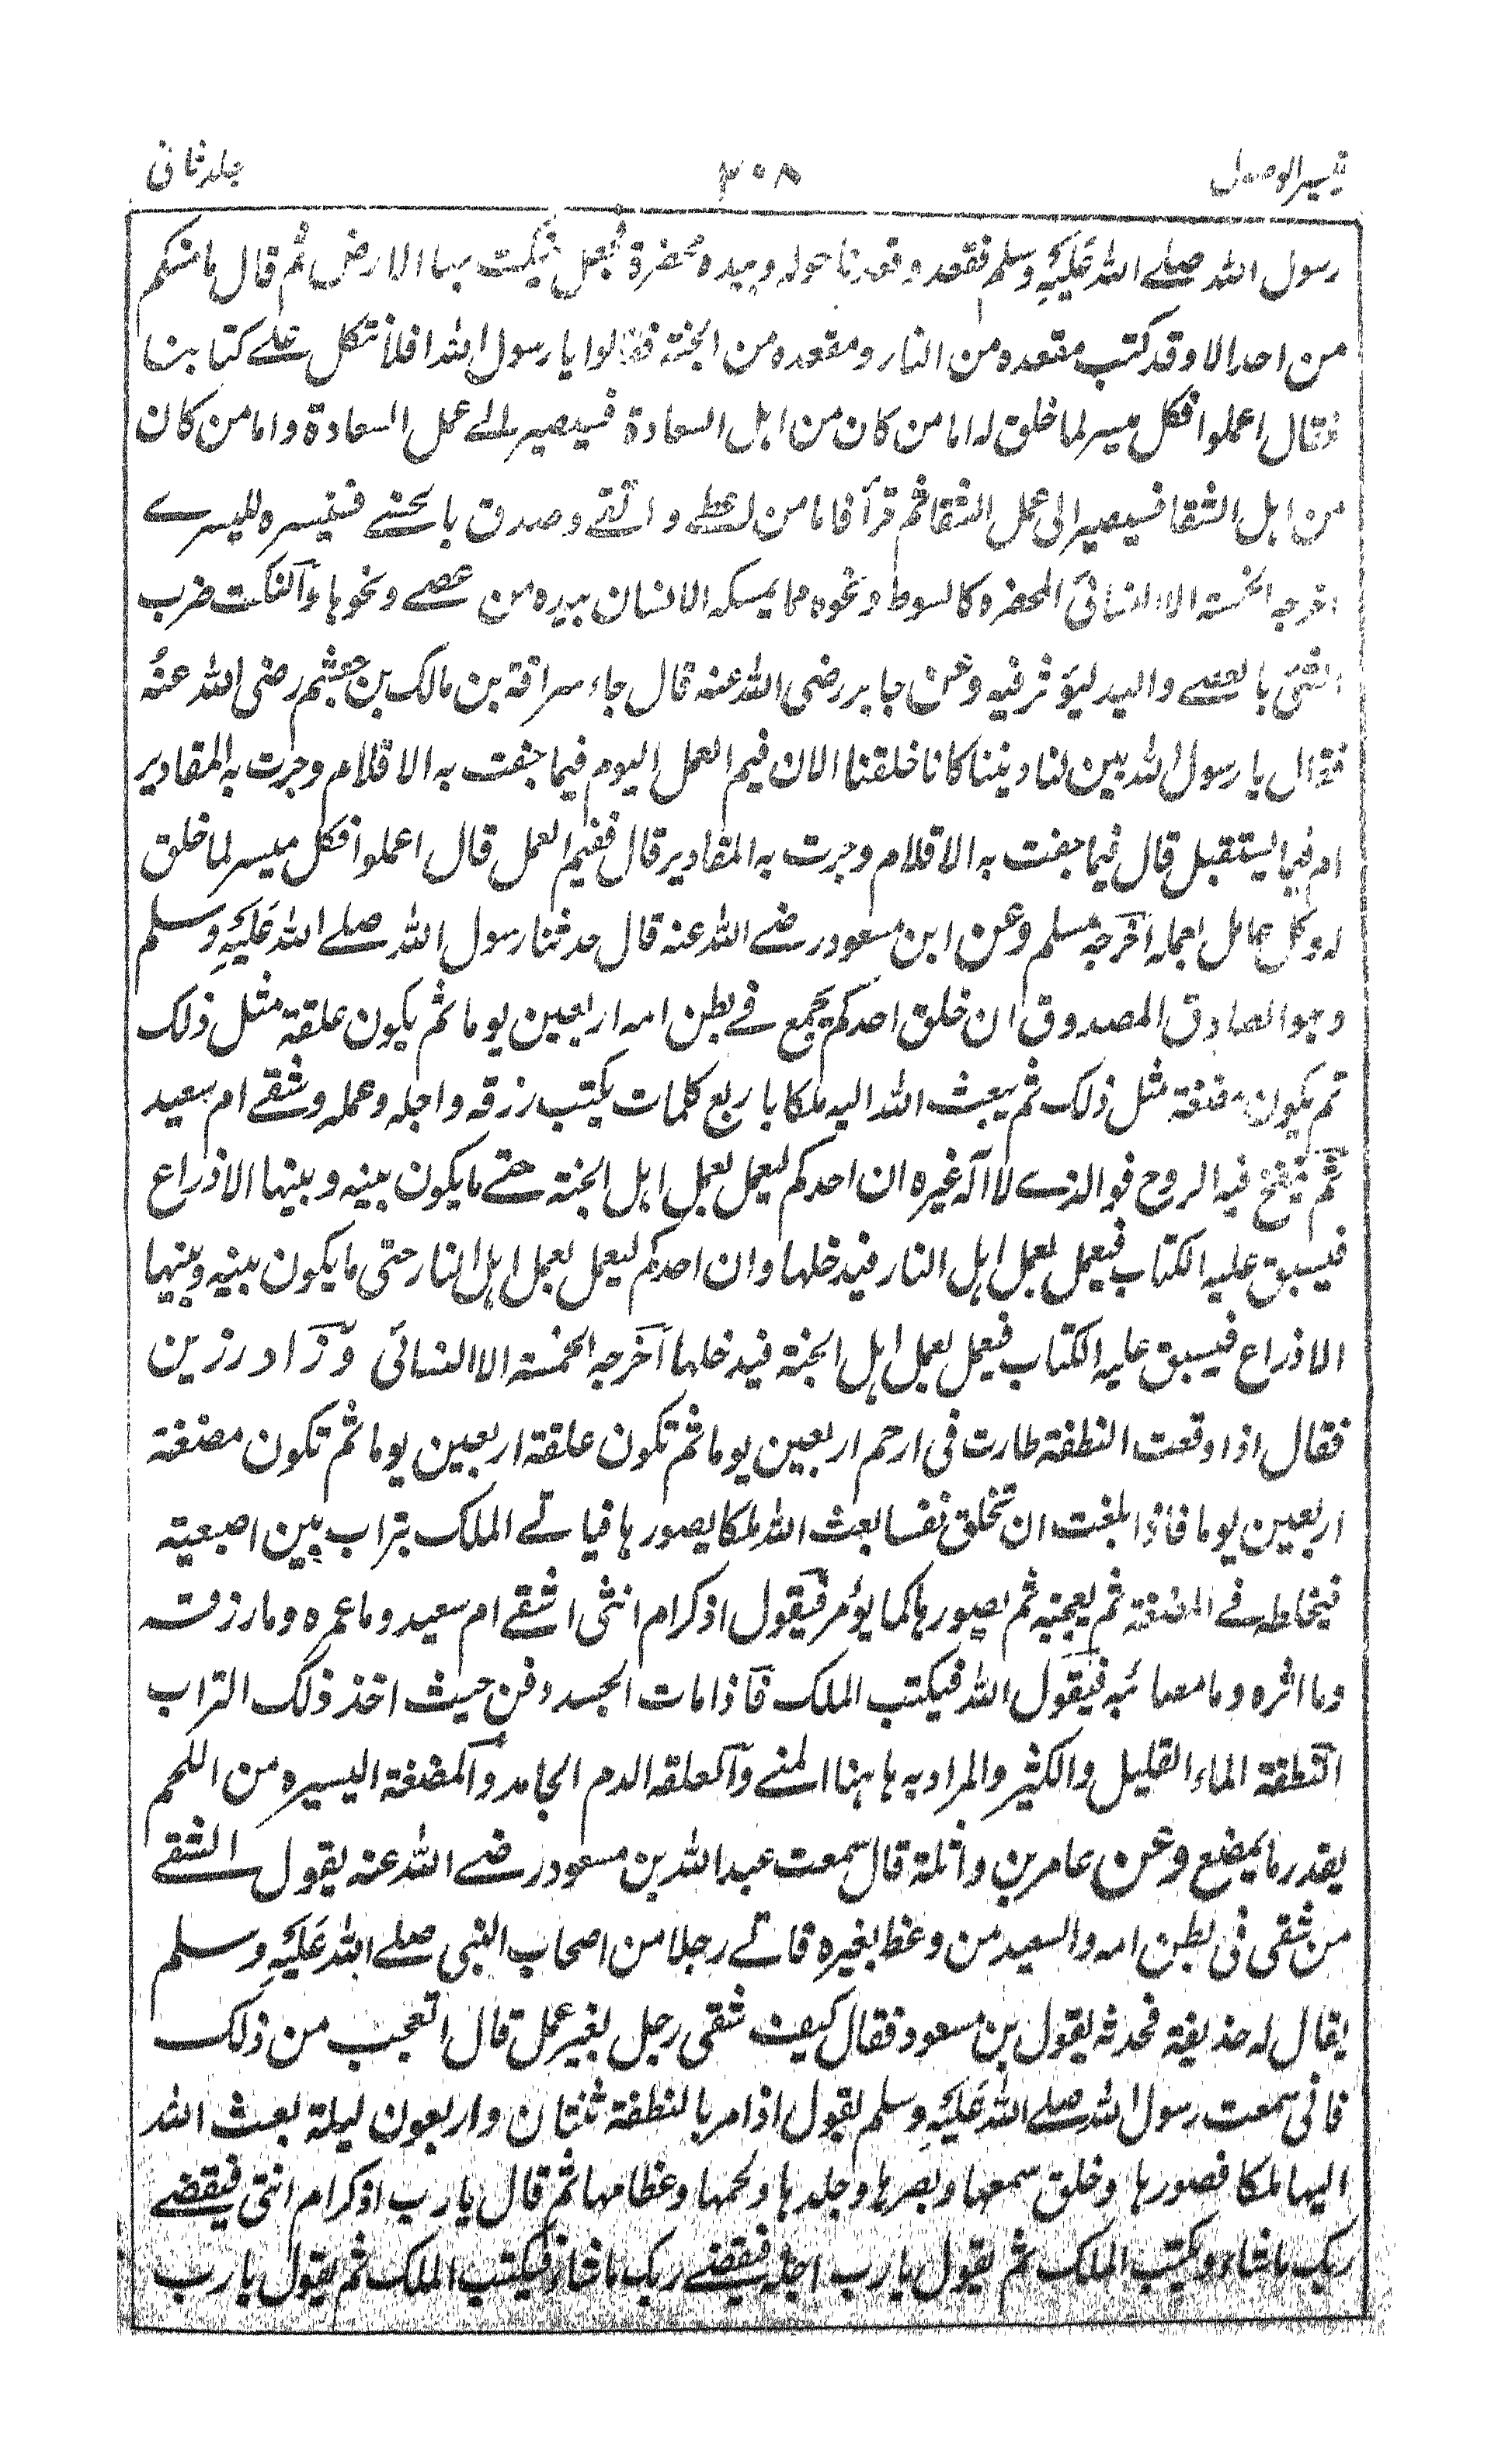 تيسير الوصول ٣٠٨ جلد ثانى
رسول الله صلے الله عَلَيْهِ وسلم فقعد وقعدنا حوله وبيده مخصرة فجعل ينكت بها الارض ثم قال ما منكم
من احد الا وقد كتب مقعده من النار ومقعده من الجنة فقالوا يا رسول الله افلا نتكل علے كتابنا
فقال اعملوا فكل ميسر لما خلق له اما من كان من اهل السعادة فسيصير الے عمل السعادة واما من كان
من اهل الشقا فسيصير الى عمل الشقا ثم قرأ فاما من اعطے و اتقے وصدق بالحسنے فسنيسره لليسرے
اخرجه الخمسة الا النسائى المخصره كالسوط ونحوه مما يمسكه الانسان بيده من عصے ونحوها والنكت ضرب
الشئ بالعصے واليد ليؤثر فيه وعن جابر رضى الله عنه قال جاء سراقة بن مالك بن جعشم رضى الله عنه
فقال يا رسول الله بين لنا ديننا كانا خلقنا الان فيم العمل اليوم فيما جفت به الاقلام وجرت به المقادير
ام فيما يستقبل قال فيما جفت به الاقلام وجرت به المقادير قال ففيم العمل قال اعملوا فكل ميسر لما خلق
له وكل عامل بعمله اخرجه مسلم وعن ابن مسعود رضے الله عنه قال حدثنا رسول الله صلے الله عَلَيْهِ وسلم
وهو الصادق المصدوق ان خلق احدكم يجمع فے بطن امه اربعين يوما ثم يكون علقة مثل ذلك
ثم يكون مضغة مثل ذلك ثم يبعث الله اليه ملكا باربع كلمات يكتب رزقه واجله وعمله وشقے ام سعيد
ثم ينفخ فيه الروح فوالذے لا اله غيره ان احدكم ليعمل بعمل اهل الجنة حتے ما يكون بينه وبينها الا ذراع
فيسبق عليه الكتاب فيعمل بعمل اهل النار فيدخلها وان احدكم ليعمل بعمل اهل النار حتى ما يكون بينه وبينها
الا ذراع فيسبق عليه الكتاب فيعمل بعمل اهل الجنة فيدخلها اخرجه الخمسة الا النسائى وزاد رزين
فقال اذا وقعت النطفة طارت فى ارحم اربعين يوما ثم تكون علقة اربعين يوما ثم تكون مضغة
اربعين يوما فاذا بلغت ان تخلق نفسا بعث الله ملكا يصورها فياتے الملك بتراب بين اصبعيه
فيخلطه فے المضغة ثم يعجنه ثم يصورها كما يؤمر فيقول اذكر ام انثى اشقے ام سعيد وما عمره وما رزقه
وما اثره وما مصائبه فيقول الله فيكتب الملك فاذا مات الجسد دفن حيث اخذ ذلك التراب
النطفة الماء القليل والكثير والمراد به هاهنا المنے والعلقه الدم الجامد والمضغة اليسيره من اللحم
بقدر ما يمضغ وعن عامر بن واثلة قال سمعت عبد الله بن مسعود رضے الله عنه يقول الشقے
من شقى فى بطن امه والسعيد من وعظ بغيره فاتے رجلا من اصحاب النبى صلے الله عَلَيْهِ وسلم
يقال له حذيفة فحدثه بقول بن مسعود فقال كيف شقى رجل بغير عمل قال اتعجب من ذلك
فانى سمعت رسول الله صلے الله عَلَيْهِ وسلم يقول اذا مر بالنطفة ثنتان واربعون ليلة بعث الله
اليها ملكا فصورها وخلق سمعها وبصرها وجلدها ولحمها وعظامها ثم قال يا رب اذكر ام انثى فيقضے
ربك ما شاء ويكتب الملك ثم يقول يا رب اجله فيقضے ربك ما شاء فيكتب الملك ثم يقول يا رب